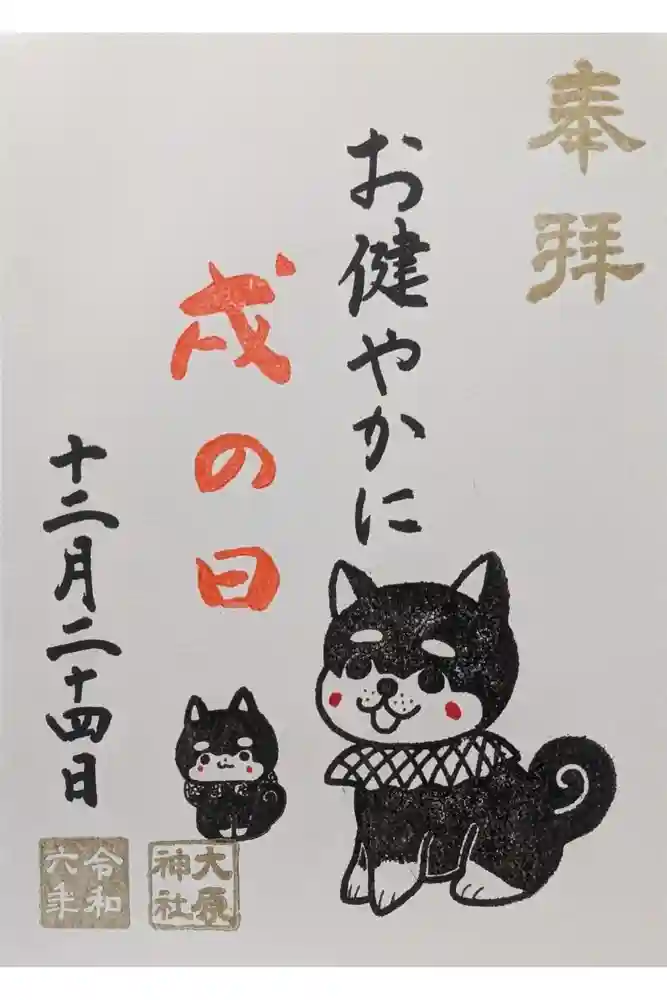 奉拝
お健やかに
戌の日
十二月二十四日
大原
神社
令和
六年